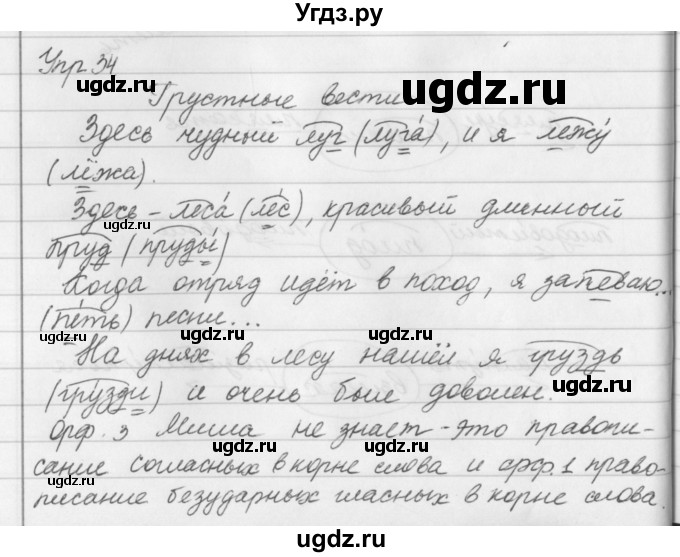 Угдз.ру
Упр. 34
ugdz.ru
ugdz.ru
Грустные вести
ugdz.ru
Здесь чудный луг (луга́), и я лежу́
(лёжа).
ugdz.ru
ugdz.ru
Здесь - леса́ (ле́с), красивый длинный
пруд (пруды́)
Когда отряд идёт в поход, я запеваю...
ugdz.ru
ugdz.ru
(пе́ть) песни...
На днях в лесу нашёл я груздь
ugdz.ru
ugdz.ru
(грузди) и очень был доволен.
Орф. 3 Миша не знает - это правопи-
сание согласных в корне слова и орф. 1 право-
ugdz.ru
ugdz.ru
писание безударных гласных в корне слова.
ugdz.ru